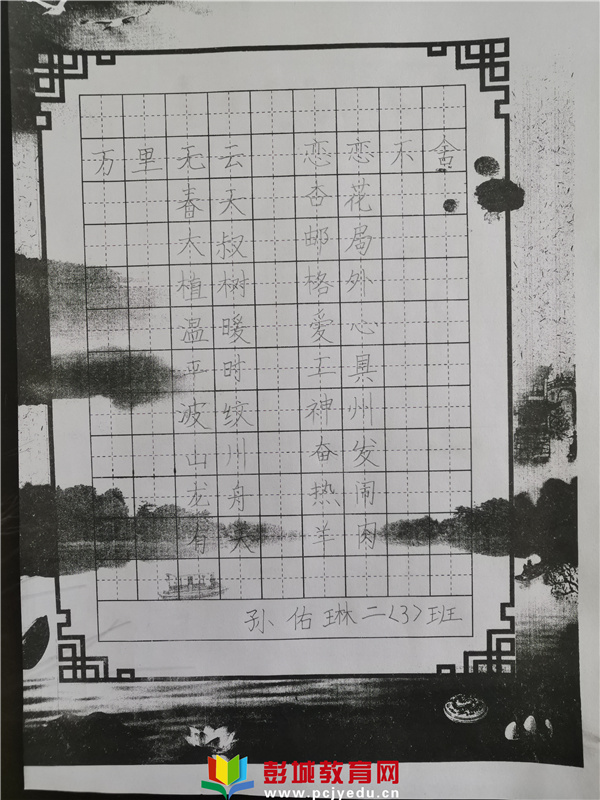 万里无云 恋恋不舍
春天 杏花
大叔 邮局
植树 格外
温暖 爱心
平时 工具
波纹 神州
山川 奋发
龙舟 热闹
有关 羊肉
孙佑琳二〈3〉班
彭城教育网
www.pcjyedu.cn